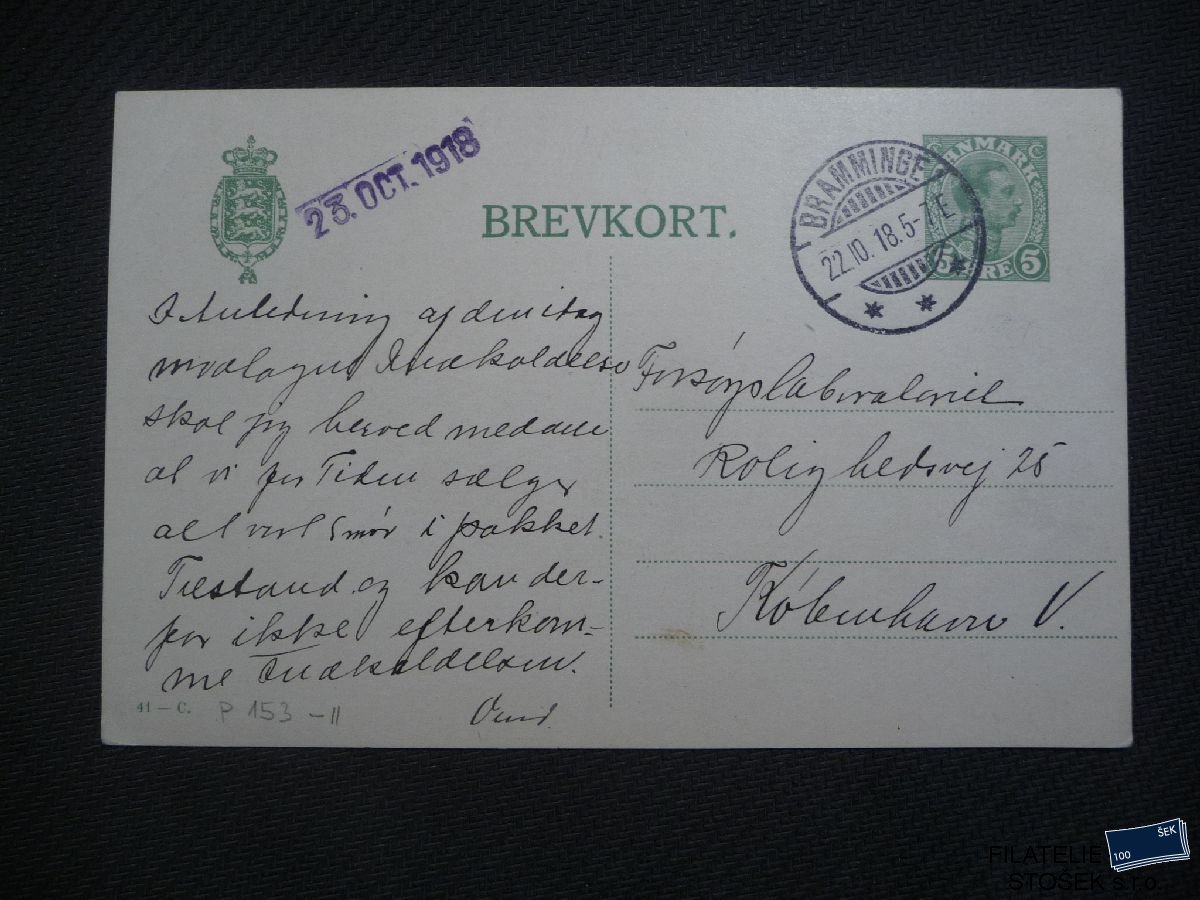 23. OCT. 1918
BREVKORT.
BRAMMINGE
22.10.18.5-7E
DANMARK
5 ØRE 5
I Anledning af den idag
modtagne Indkaldelse
skal jeg herved meddele
at vi for Tiden sælger
alt vort Smør i pakket
Tilstand og kan der-
for ikke efterkom-
me Indkaldelsen.
Forsøgslaboratoriet
Rolighedsvej 25
København V.
41 — C.
P 153 - II
100 ŠEK
FILATELIE
STOŠEK s.r.o.